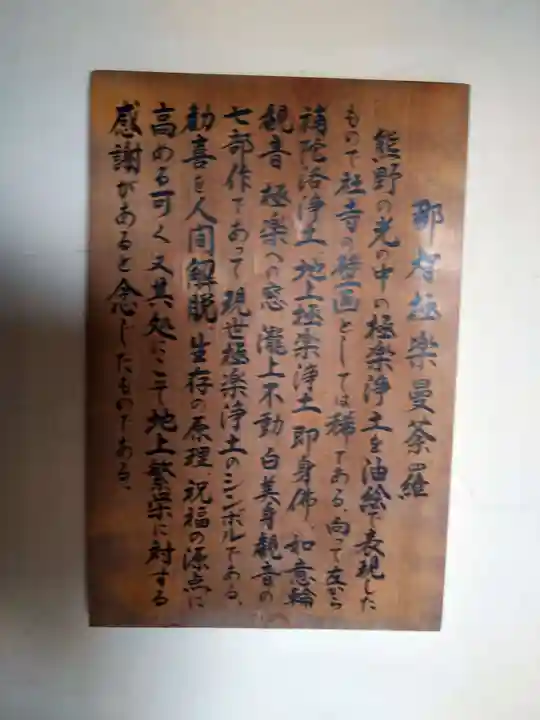 那智極楽曼荼羅
熊野の光の中の極楽浄土を油絵で表現した
もので社寺の壁画としては稀である、向って左から
補陀洛浄土、地上極楽浄土、即身佛、如意輪
観音、極楽への窓、瀧上不動、白美身観音の
七部作であって現世極楽浄土のシンボルである、
勧喜を人間解脱、生存の原理、祝福の源点に
高める可く又其処にこそ地上繁栄に対する
感謝があると念じたものである、